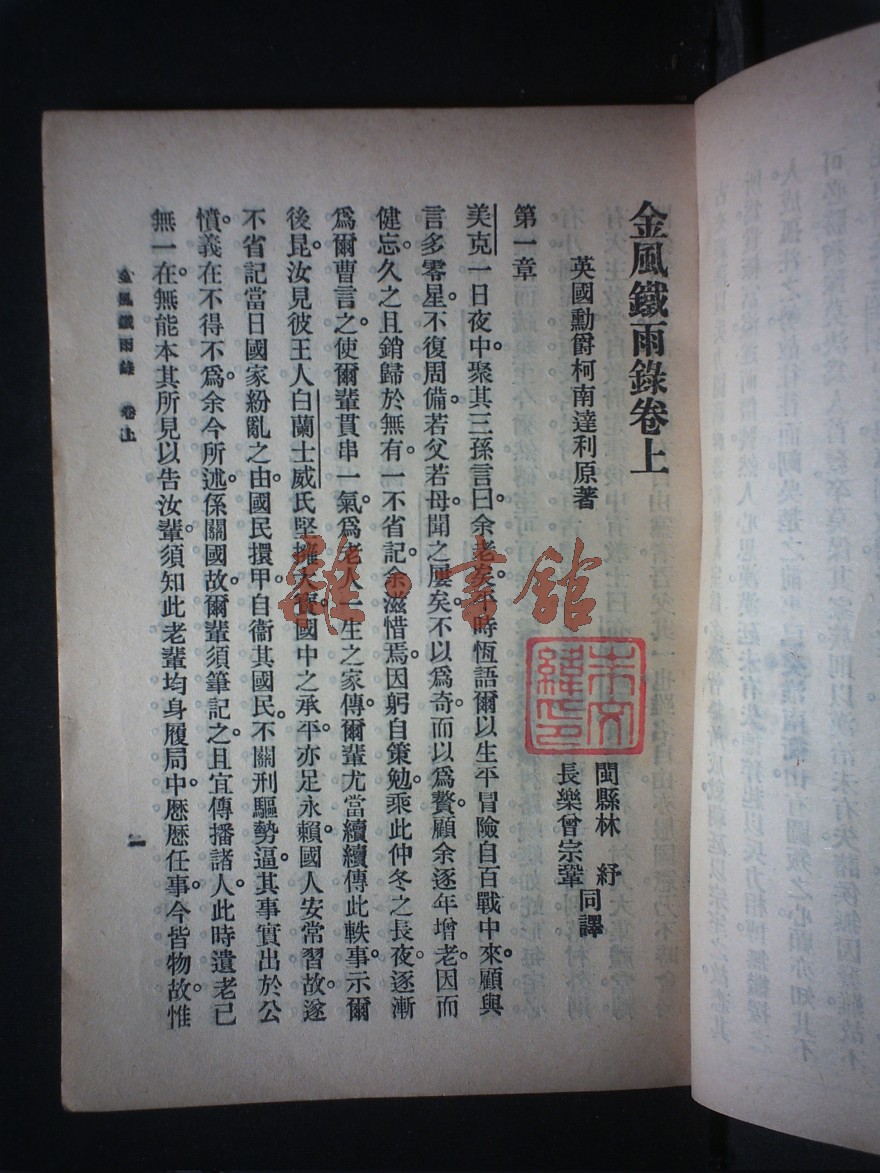 金風鐵雨錄卷上
英國勳爵柯南達利原著
閩縣林　紓
長樂曾宗鞏
同譯
第一章
美克一日夜中聚其三孫言曰余老矣平時恆語爾以生平冒險自百戰中來。顧與
言多零星。不復周備若父若母聞之屢矣。不以爲奇而以爲贅顧余逐年增老。因而
健忘。久之且銷歸於無有一不省記。余滋惜焉。因躬自策勉。乘此仲冬之長夜逐漸
爲爾曹言之。使爾輩貫串一氣。爲老人一生之家傳爾輩尤當續續傳此軼事。示爾
後昆。汝見彼王人白蘭士威氏堅擁大寶。國中之承平亦足永賴。國人安常習故。遂
不省記當日國家紛亂之由。國民擐甲自衞其國民。不關刑驅勢逼。其事實出於公
憤。義在不得不爲。余今所述。係關國故。爾輩須筆記之。且宜傳播諸人。此時遺老已
無一在。無能本其所見以告汝輩須知此老輩均身履局中。歷歷任事今皆物故。惟
金風鐵雨錄　卷上
一
雜·書館
朱文
緯印